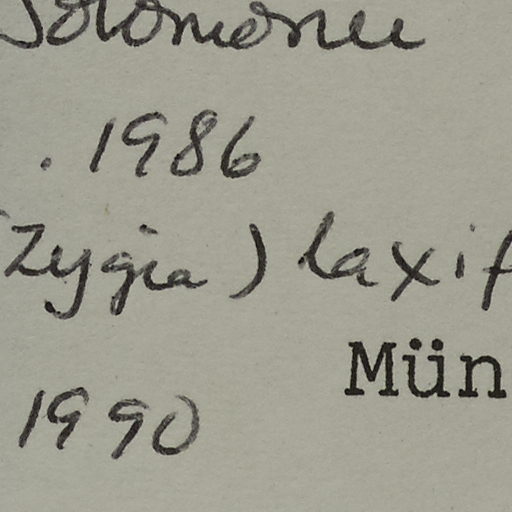 . 1986
Zygia) laxif
Mün
1990